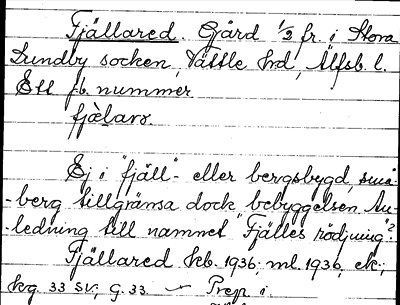 Fjällared. Gård 1/2 fr. i Stora
Lundby socken, Vättle hd, Älfsb. l.
Ett jb. nummer
fjælarə.
Ej i "fjäll"- eller bergsbygd, små-
-berg tillgränsa dock bebyggelsen. An-
-ledning till namnet "Fjälles rödjning"?
Fjällared kb. 1936; ml. 1936, ek.;
hvg. 33 SV, G. 33. — Prep. i.